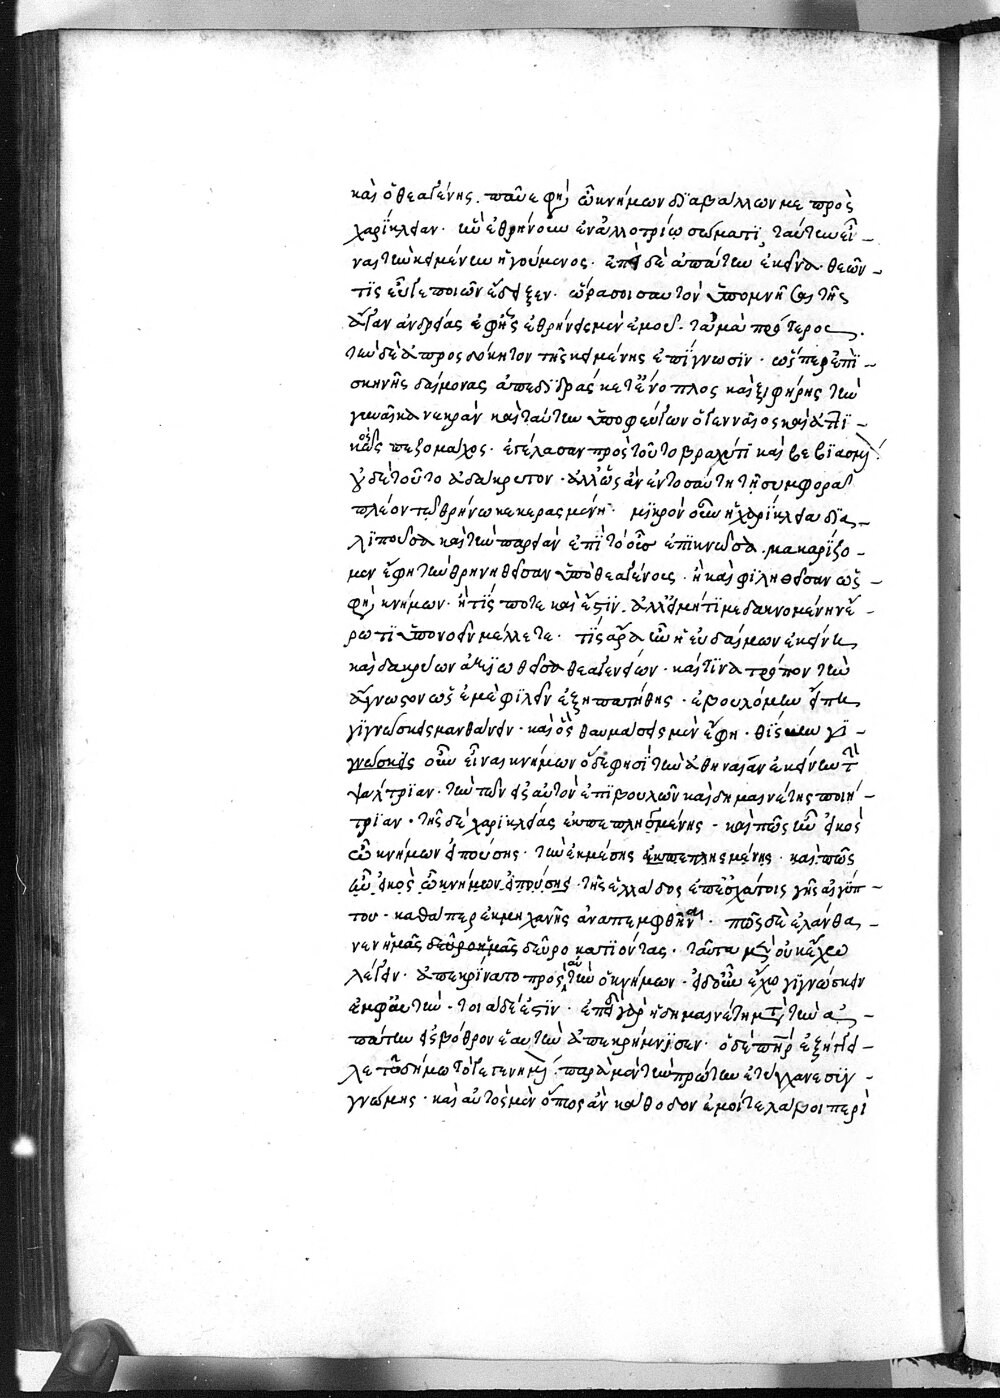 καὶ ὁ θεαγένης. παῦε ἔφη ὦ κνήμων διαβάλλων με πρὸς
χαρίκλειαν. ἣν ἐθρήνουν ἐν ἀλλοτρίῳ σώματι, ταύτην εἶ-
ναι τὴν κειμένην ἡγούμενος. ἐπεὶ δὲ ἀπάτην ἐκεῖνα θεῶν
τις εὖγε ποιῶν ἔδειξεν. ὥρα σοι σαυτὸν ὑπομνῆσαι τῆς
ἄγαν ἀνδρείας ἐφ' ἧς ἐθρήνεις μὲν ἐμοῦ. τἀμὰ πρότερος.
τὴν δὲ ἀπροσδόκητον τῆς κειμένης ἐπίγνωσιν. ὥσπερ ἐπὶ
σκηνῆς δαίμονας ἀπεδίδρασκε τὲ ἔνοπλος καὶ ξιφήρης τὴν
γυναῖκα νεκρὰν καὶ ταύτην ὑποφεύγων ὁ γενναῖος καὶ ἀττι-
κὸς πεζομάχος. ἐγέλασαν πρὸς τοῦτο βραχύ τι καὶ βεβιασμένον
οὐδὲ τοῦτο ἀδάκρυτον. ἀλλ' ὡς ἂν ἐν τοσαύτῃ τῇ συμφορᾷ
πλέον τῷ θρήνῳ κεκερασμένη. μικρὸν οὖν ἡ χαρίκλεια δια-
λιποῦσα καὶ τὴν παρειὰν ἐπὶ τὸ οὖς ἐπικνῶσα. μακαρίζο-
μεν ἔφη τὴν θρηνηθεῖσαν ὑπὸ θεαγένους. ἢ καὶ φιληθεῖσαν ὥς
φησι κνήμων. ἥτις ποτε καὶ ἔστιν. ἀλλ' εἰ μή τι με δακνομένην ἔ-
ρωτι ὑπονοεῖν μέλλετε. τίς ἄρα ἦν ἡ εὐδαίμων ἐκείνη
καὶ δακρύων ἀξιωθεῖσα θεαγενείων. καὶ τίνα τρόπον τὴν
ἄγνωστον ὡς ἐμὲ φιλεῖν ἐξηπατήθης. ἐβουλόμην εἴπερ
γιγνώσκεις μανθάνειν. καὶ ὃς θαυμάσεις μὲν ἔφη. θίσβην γι-
γνώσκεις οὖν εἶναι κνήμων ὅδε φησὶ τὴν ἀθηναίαν ἐκείνην τὴν
ψάλτριαν. τὴν τῶν εἰς αὐτὸν ἐπιβουλῶν καὶ δημαινέτης ποιή-
τριαν. τῆς δὲ χαρικλείας ἐκπεπλησμένης. καὶ πῶς ἦν εἰκὸς
ὦ κνήμων εἰπούσης. τὴν ἐκ μέσης ἐκπεπλησμένης. καὶ πῶς
ἦν εἰκὸς ὦ κνήμων εἰπούσης. τῆς ἑλλάδος ἐπ' ἐσχάτοις γῆς αἰγύπ-
του. καθάπερ ἐκ μηχανῆς ἀναπεμφθῆναι. πῶς δὲ ἐλάνθα-
νεν ἡμᾶς δεῦρο ἡμᾶς δεῦρο κατιόντας. ταῦτα μὲν οὐκ ἔχω
λέγειν. ἀπεκρίνατο πρὸς αὐτὴν ὁ κνήμων. εἰδοῦν ἔχω γιγνώσκειν
ἐμφ' αὐτὴν. τοιάδε ἐστὶν. ἐπεὶ γὰρ ἡ δημαινέτη μετὰ τὴν ἀ-
πάτην εἰς βόθρον ἑαυτὴν ἀπεκρήμνισεν. ὁ δὲ πατὴρ ἐξήγγει-
λε τῷ δήμῳ τὸ γεγενημένον. παρὰ μὲν τὴν πρώτην ἐτύγχανε συγ-
γνώμης. καὶ αὐτὸς μὲν ὅπως ἂν κάθοδον ἐμοί τε λάβοι περὶ